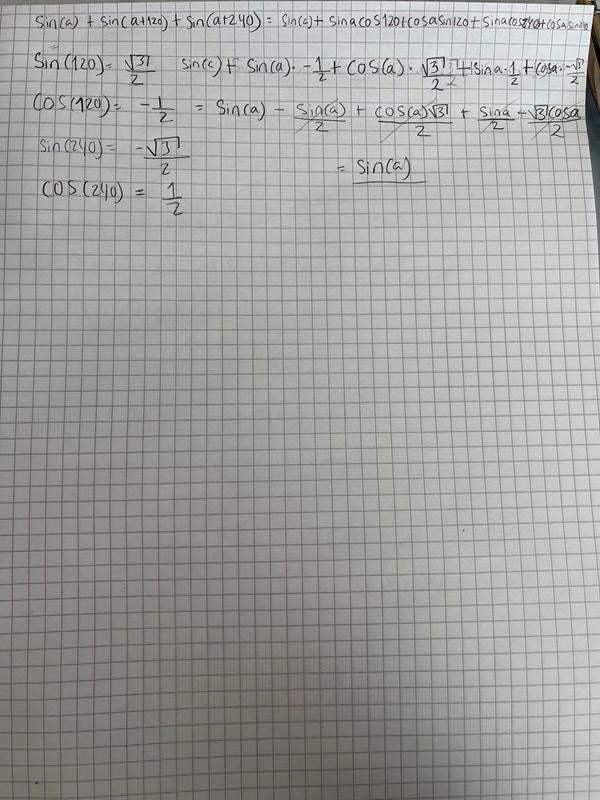 Sin(a) + sin(a+120) + sin(a+240) = sin(a) + sinacos120+cosasin120+sinacos240+cosasin240
Sin(120) = √3/2 sin(a) + sin(a) · -1/2 + cos(a) · √3/2 + sina · 1/2 + cosa · -√3/2
cos(120) = -1/2 = sin(a) - sin(a)/2 + cos(a)√3/2 + sina/2 - √3cosa/2
sin(240) = -√3/2
= sin(a)
cos(240) = 1/2